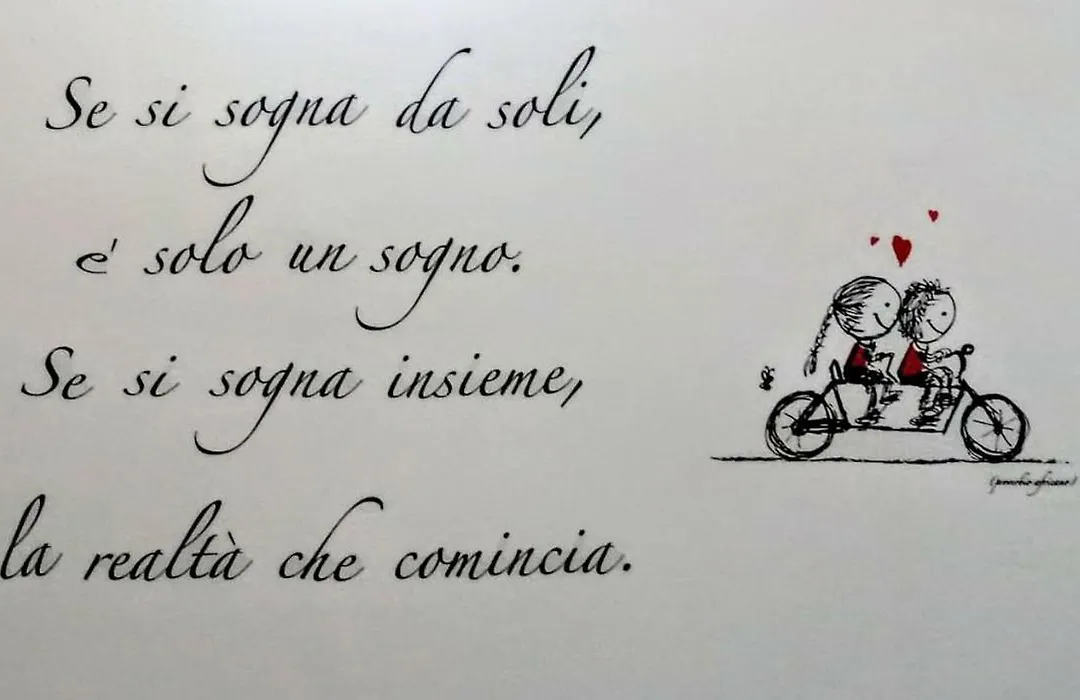 Se si sogna da soli,
e' solo un sogno.
Se si sogna insieme,
la realtà che comincia.
(proverbio africano)